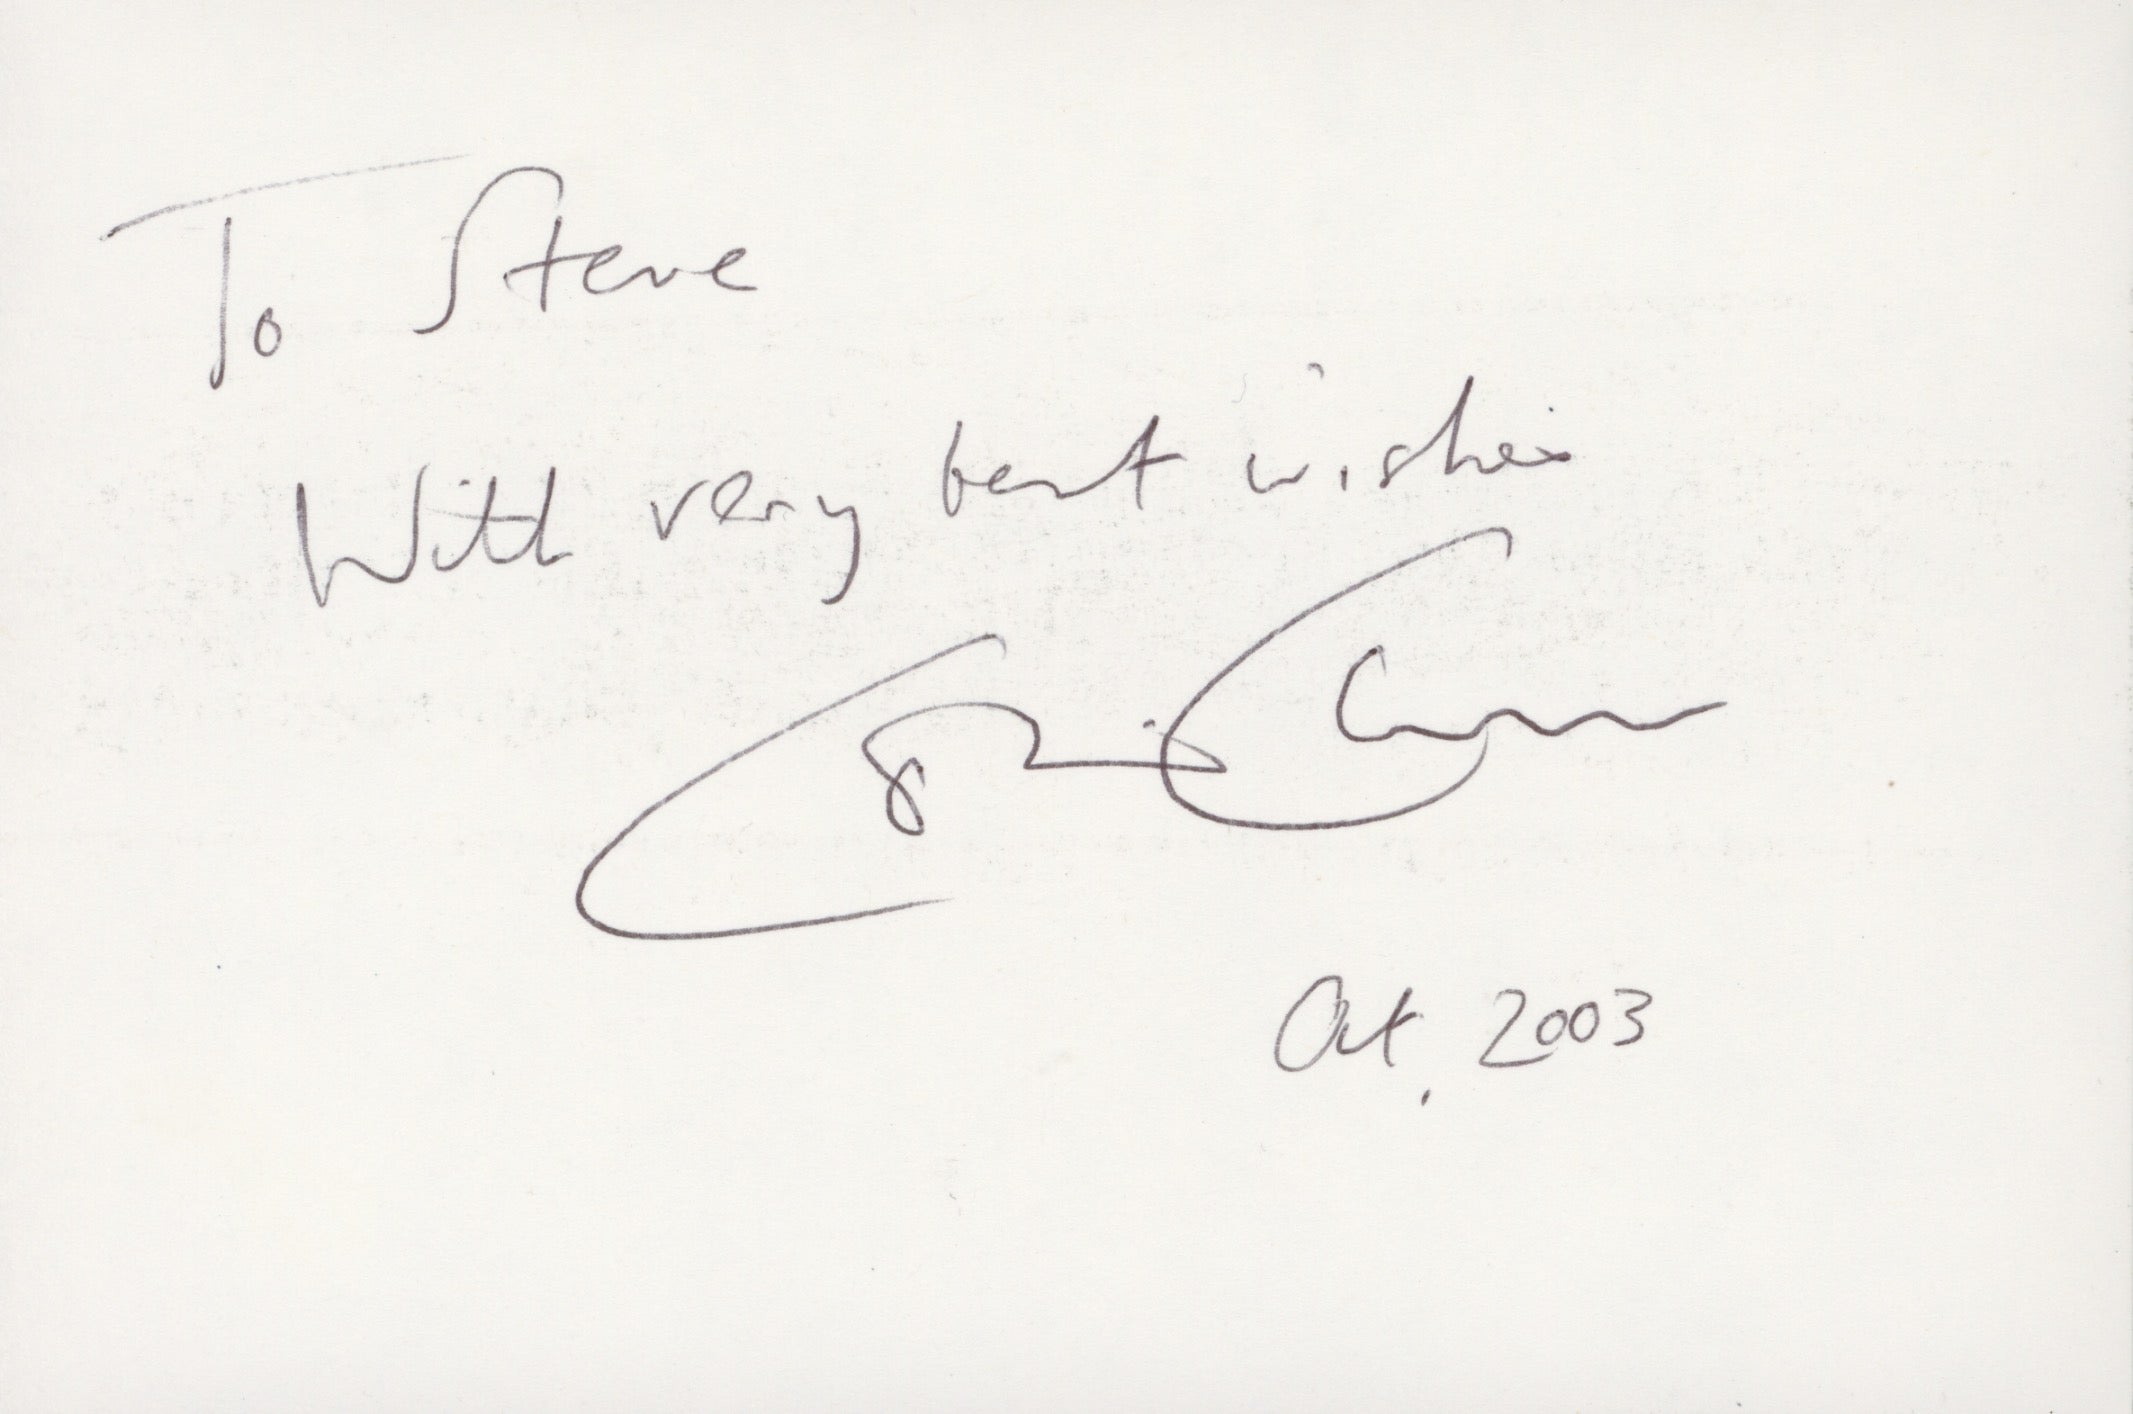 To Steve
With very best wishes
Oct, 2003